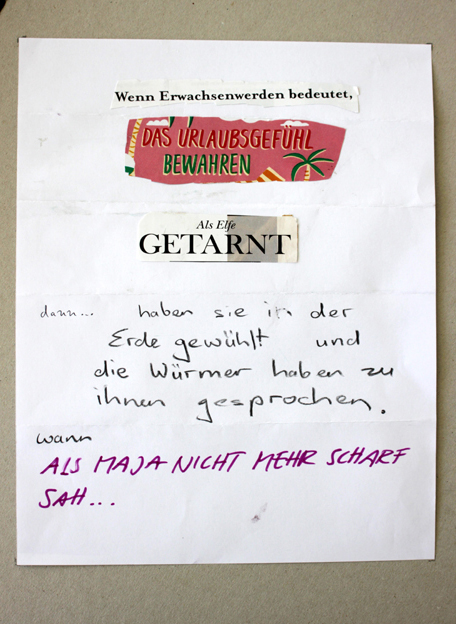 Wenn Erwachsenwerden bedeutet,
DAS URLAUBSGEFÜHL
BEWAHREN
Als Elfe
GETARNT
dann... haben sie in der
Erde gewühlt und
die Würmer haben zu
ihnen gesprochen.
wann
ALS MAJA NICHT MEHR SCHARF
SAH...